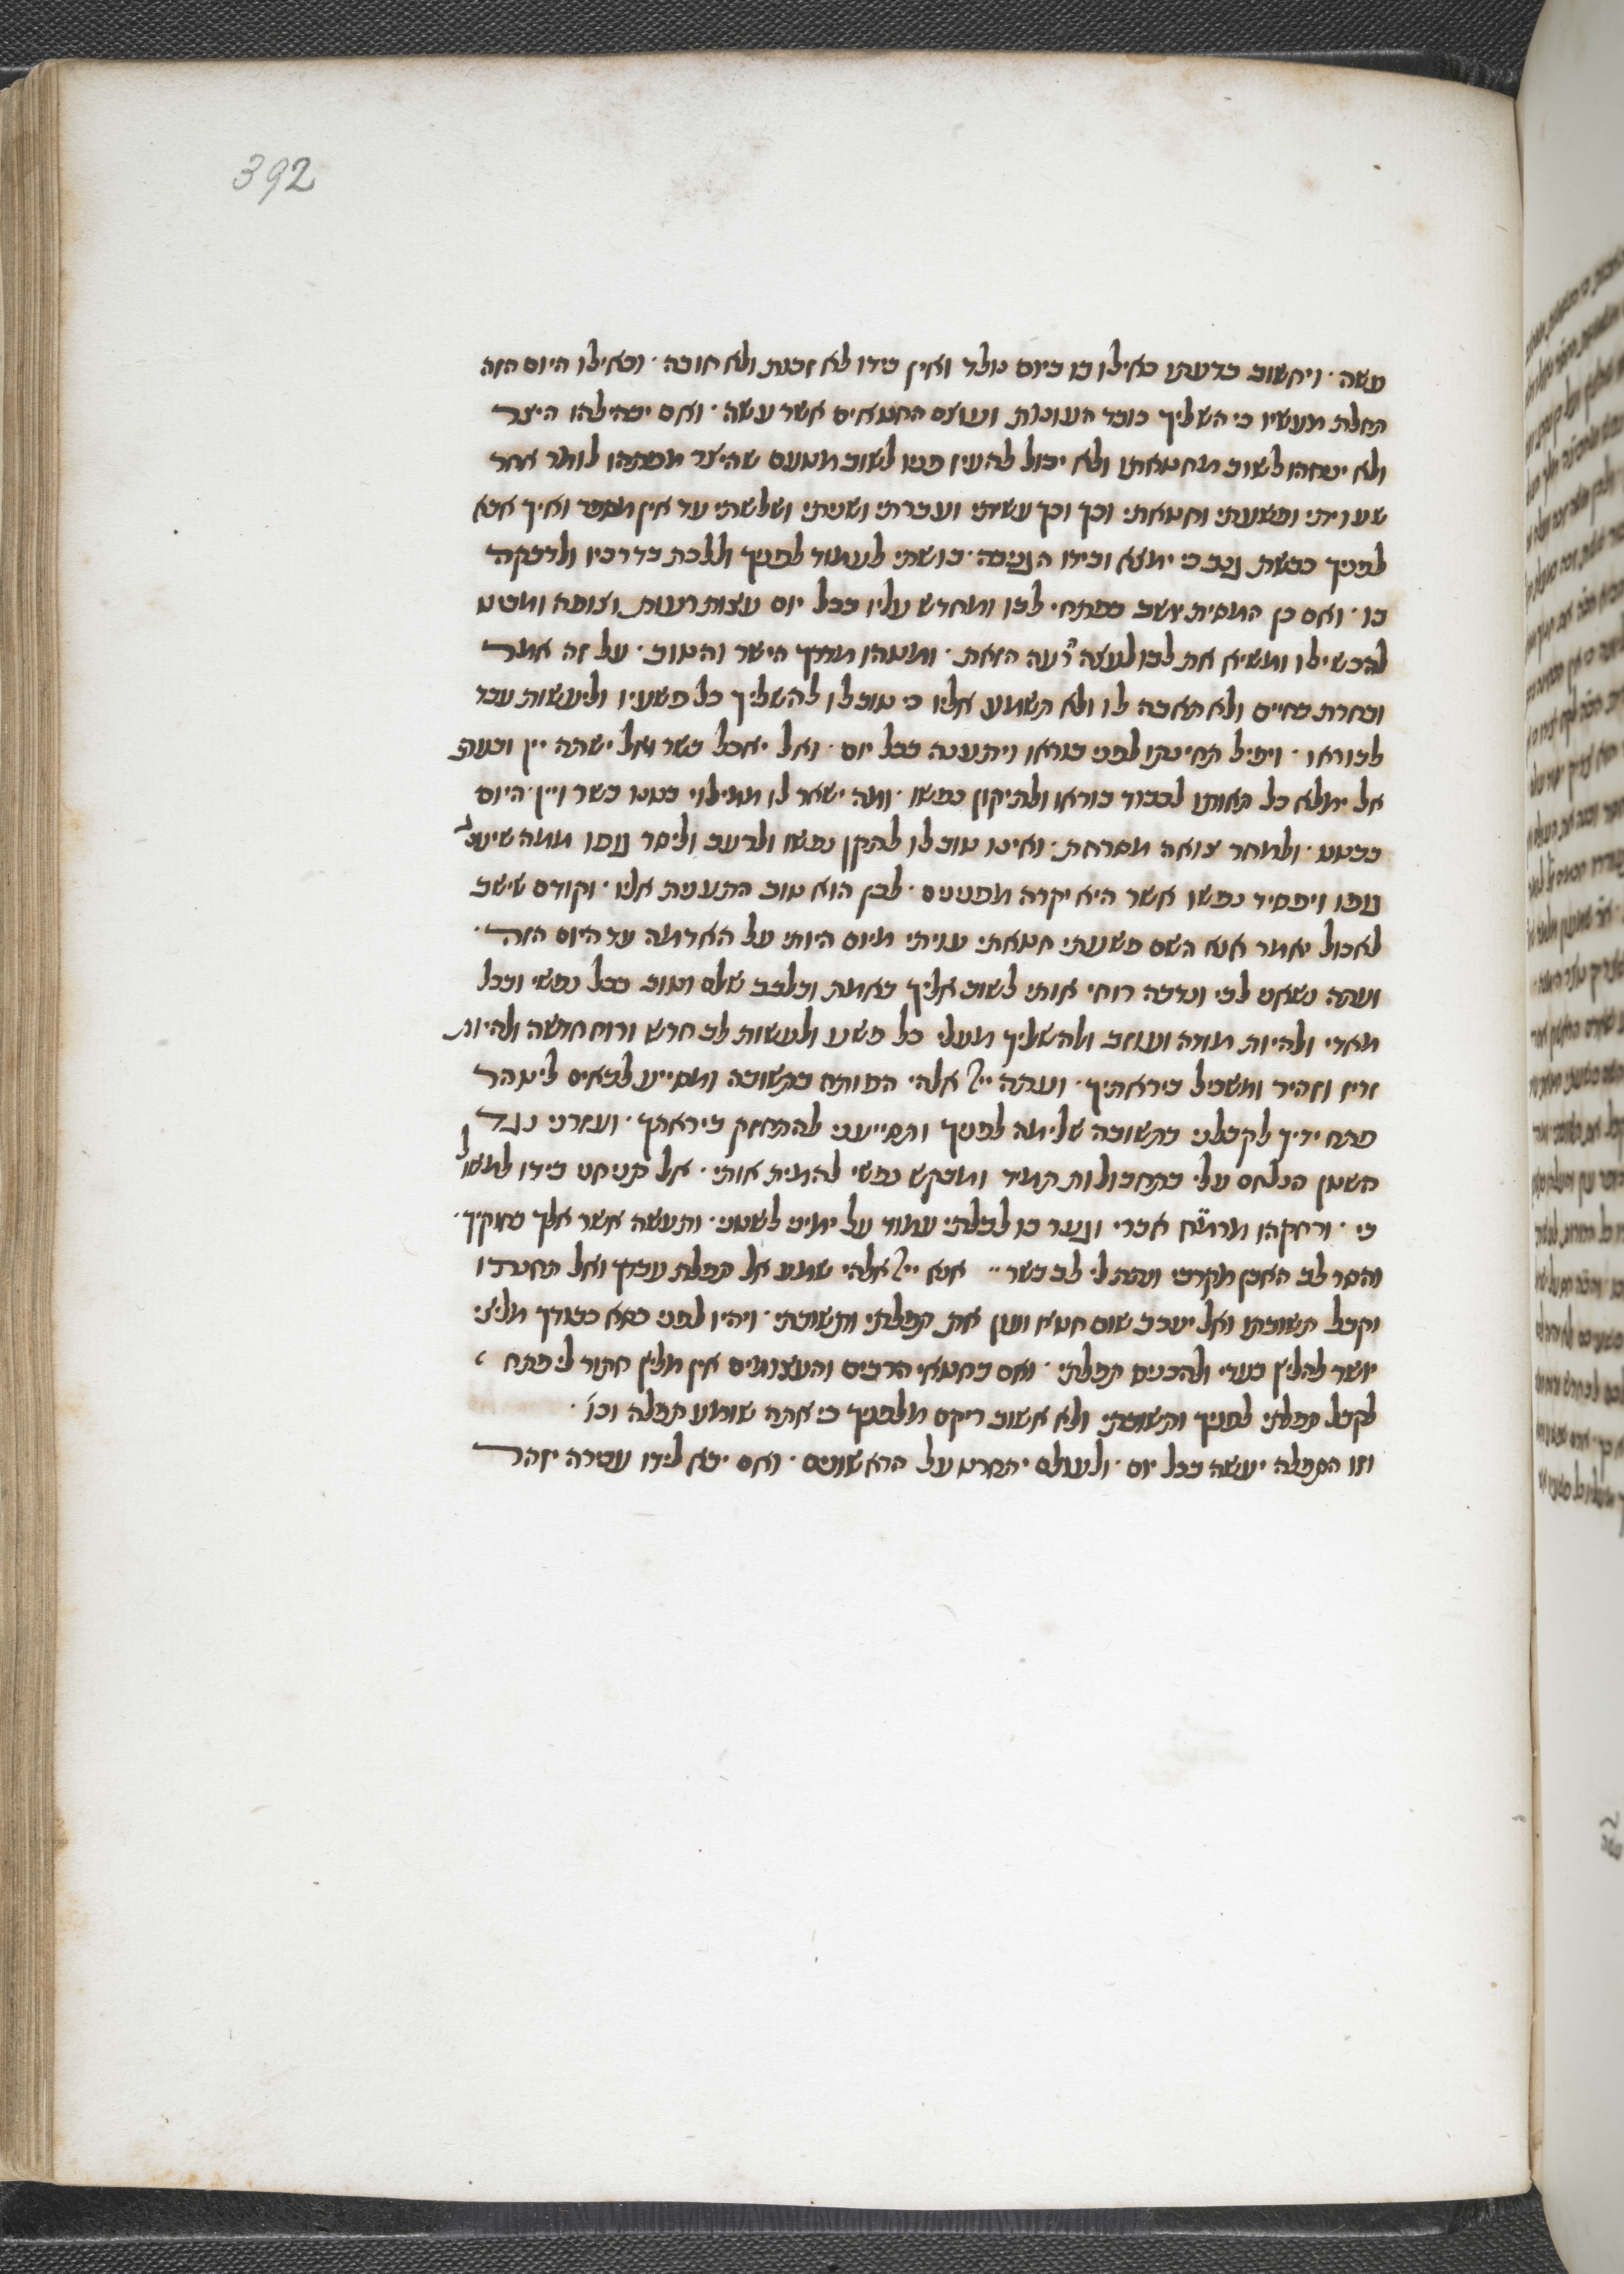 392
עשה. ויחשוב בדעתו כאילו בו ביום נולד ואין בידו לא זכות ולא חובה. וכאילו היום הזה
תחלת מעשיו כי השליך כובד העונות ועוצם החטאים אשר עשה. ואם יבהילהו היצר
ולא יניחהו לשוב מחטאתו ולא יכול להעיז פניו לשוב מטעם שהיצר מפתהו לומר אחר
שעויתי ופשעתי וחטאתי וכך וכך עשיתי ועברתי ושניתי ושלשתי עד אין מספר ואיך אבא
לפניך כבשת גנב כי ימצא ובידו הגניבה. בושתי לעמוד לפניך וללכת בדרכיו ולדבקה
בו. ואם כן המסית יושב במפתחי לבו ומחדש עליו בכל יום עצות רעות וצופה ומביט
להכשילו ומשיא את לבו לעצה רעה הזאת. ומטהו מדרך הישר והטוב. על זה אמר
ובחרת בחיים ולא תאבה לו ולא תשמע אליו כי טוב לו להשליך כל פשעיו וליעשות עבד
לבוראו. ויפיל תחינתו לפני בוראו ויתענה בכל יום. ואל יאכל בשר ואל ישתה יין ובעת
אל ימלא כל תאותו לכבוד בוראו ולתיקון נפשו. ומה ישאר לו ממילוי בטנו בשר ויין. היום
בבטנו ולמחר צואה מסרחת. ואינו טוב לו לתקן נפשו ולרעב וליסר גופו ממה שיענג
גופו ויפסיד נפשו אשר היא יקרה מפנינים. לכן הוא טוב התענית אליו. וקודם שישב
לאכול יאמר אנא השם פשעתי חטאתי עויתי מיום היותי על האדמה עד היום הזה.
ועתה נשאני לבי ונדבה רוחי אותי לשוב אליך באמת ובלבב שלם וטוב בכל נפשי ובכל
מאדי ולהיות מודה ועוזב ולהשליך מעלי כל פשע ולעשות לב חדש ורוח חדשה ולהיות
זריז וזהיר ומשכיל ביראתיך. ועתה יי' אלהי הפותח בתשובה ומסייע לבאים ליטהר
פתח ידיך לקבלני בתשובה שלימה לפניך ותסייעני להתחזק ביראתך. ועזרני נגד
השטן הנלחם עלי בתחבולות תמיד ומבקש נפשי להמית אותי. אל תניחני בידו למשול
בי. ורחקהו מרמ״ח אברי וגער בו לבלתי עמוד על ימיני לשטני. ותעשה אשר אלך בחקיך.
והסר לב האבן מקרבי ותתן לי לב בשר.. אנא יי' אלהי שמע אל תפלת עבדך ואל תחנוניו
וקבל תשובתו ואל יעכב שום חטא ועון את תפלתי ותשובתי. ויהיו לפני כסא כבודך מליצי
יושר להליץ בעדי ולהכניס תפלתי. ואם בחטאי הרבים והעצומים אין מליץ חתור לי פתח
לקבל תפלתי לפניך ותשובתי ולא אשוב ריקם מלפניך כי אתה שומע תפלה וכו'.
וזו התפלה יעשה בכל יום. ולעולם יתחרט על הראשונים. ואם יבא לידו עבירה יזהר